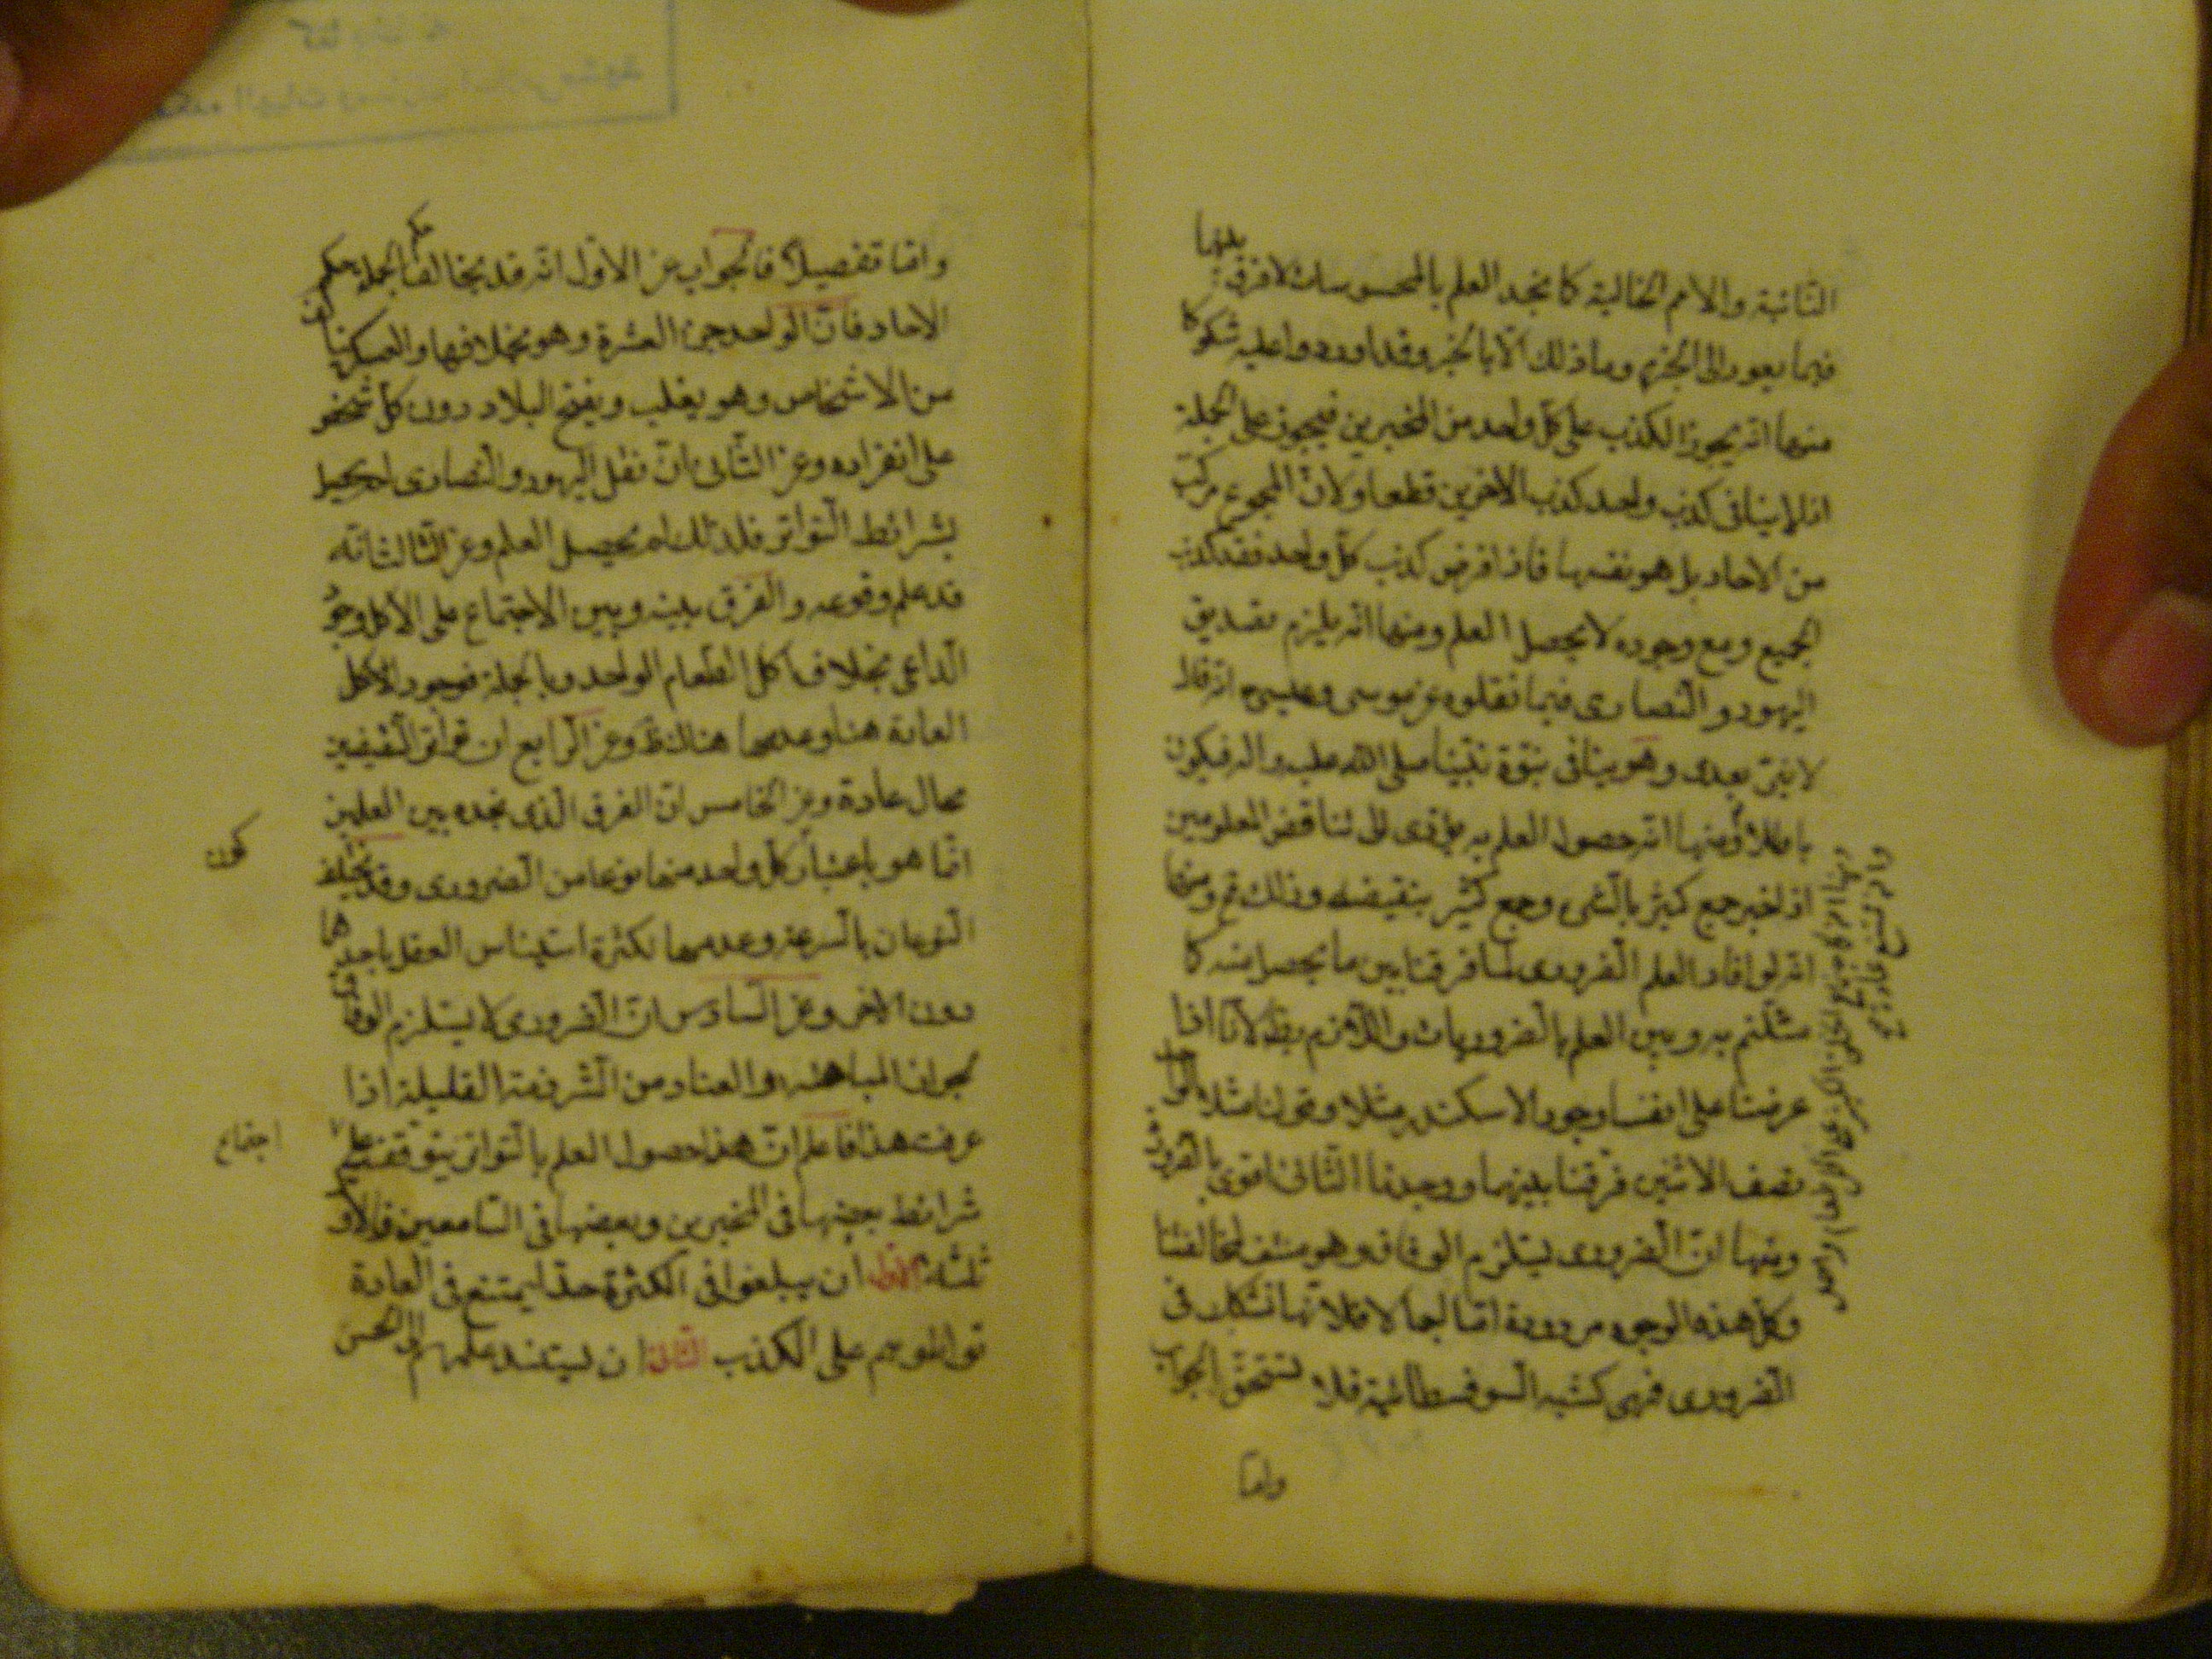 النائية والامم الخالية كما نجد العلم بالمحسوسات لا فرق بينهما
فيما يعود الى الجزم وما ذلك الا بالخبر وقد اوردوا عليه شكوكا
منها انه يجوز الكذب على كل واحد من المخبرين فيجوز على الجملة
اذ لا ينافى كذب واحد كذب الآخرين قطعا ولان المجموع مركب
من الآحاد بل هو نفسها فاذا فرض كذب كل واحد فقد كذب
الجميع ومع وجوده لا يحصل العلم ومنها انه يلزم تصديق
اليهود والنصارى فيما نقلوه عن موسى وعيسى انه قال
لا نبى بعدى وهو ينافى نبوة نبينا صلى الله عليه واله فيكون
باطلا ومنها ان حصول العلم به يؤدى الى تناقض المعلومين
اذا اخبر جمع كثير بالشىء وجمع كثير بنقيضه وذلك مح ومنها
انه لو افاد العلم الضرورى لما فرقنا بين ما يحصل منه كما
مثلتم به وبين العلم بالضروريات واللازم بط لانا اذا
عرضنا على انفسنا وجود الاسكندر مثلا وقولنا مثلا الواحد
نصف الاثنين فرقنا بينهما ووجدنا الثانى اقوى بالضرورة
ومنها ان الضرورى يستلزم الوفاق وهو منتف لمخالفتنا
وكل هذه الوجوه مردودة اما اجمالا فلانها تشكيك فى
الضرورى فهى كشبه السوفسطائية فلا تستحق الجواب
واما
واما تفصيلا فالجواب عن الاول انه قد يخالف حكم الجملة حكم
الآحاد فان الواحد جزء العشرة وهو بخلافها والعسكر
من الاشخاص وهو يغلب ويفتح البلاد دون كل شخص
على انفراده وعن الثانى ان نقل اليهود والنصارى لم يحصل
بشرائط التواتر فلذلك لم يحصل العلم وعن الثالث انه
قد علم وقوعه والفرق بينه وبين الاجتماع على الاكل وجود
الداعى بخلاف اكل الطعام الواحد وبالجملة فوجود
العادة هنا وعدمها هناك ظ وعن الرابع ان تواتر النقيضين
محال عادة وعن الخامس ان الفرق الذى نجده بين العلمين
انما هو باعتبار كون كل واحد منهما نوعا من الضرورى وقد يختلف
النوعان بالسرعة وعدمها لكثرة استيناس العقل باحدهما
دون الآخر وعن السادس ان الضرورى لا يستلزم الوفاق
لجواز المباهتة والعناد من الشرذمة القليلة اذا
عرفت هذا فاعلم ان هذا حصول العلم بالتواتر يتوقف على اجتماع
شرائط بعضها فى المخبرين وبعضها فى السامعين فالاول
ثلثة الاول ان يبلغوا فى الكثرة حدا يمتنع فى العادة
تواطؤهم على الكذب الثانى ان يستند علمهم الى الحس